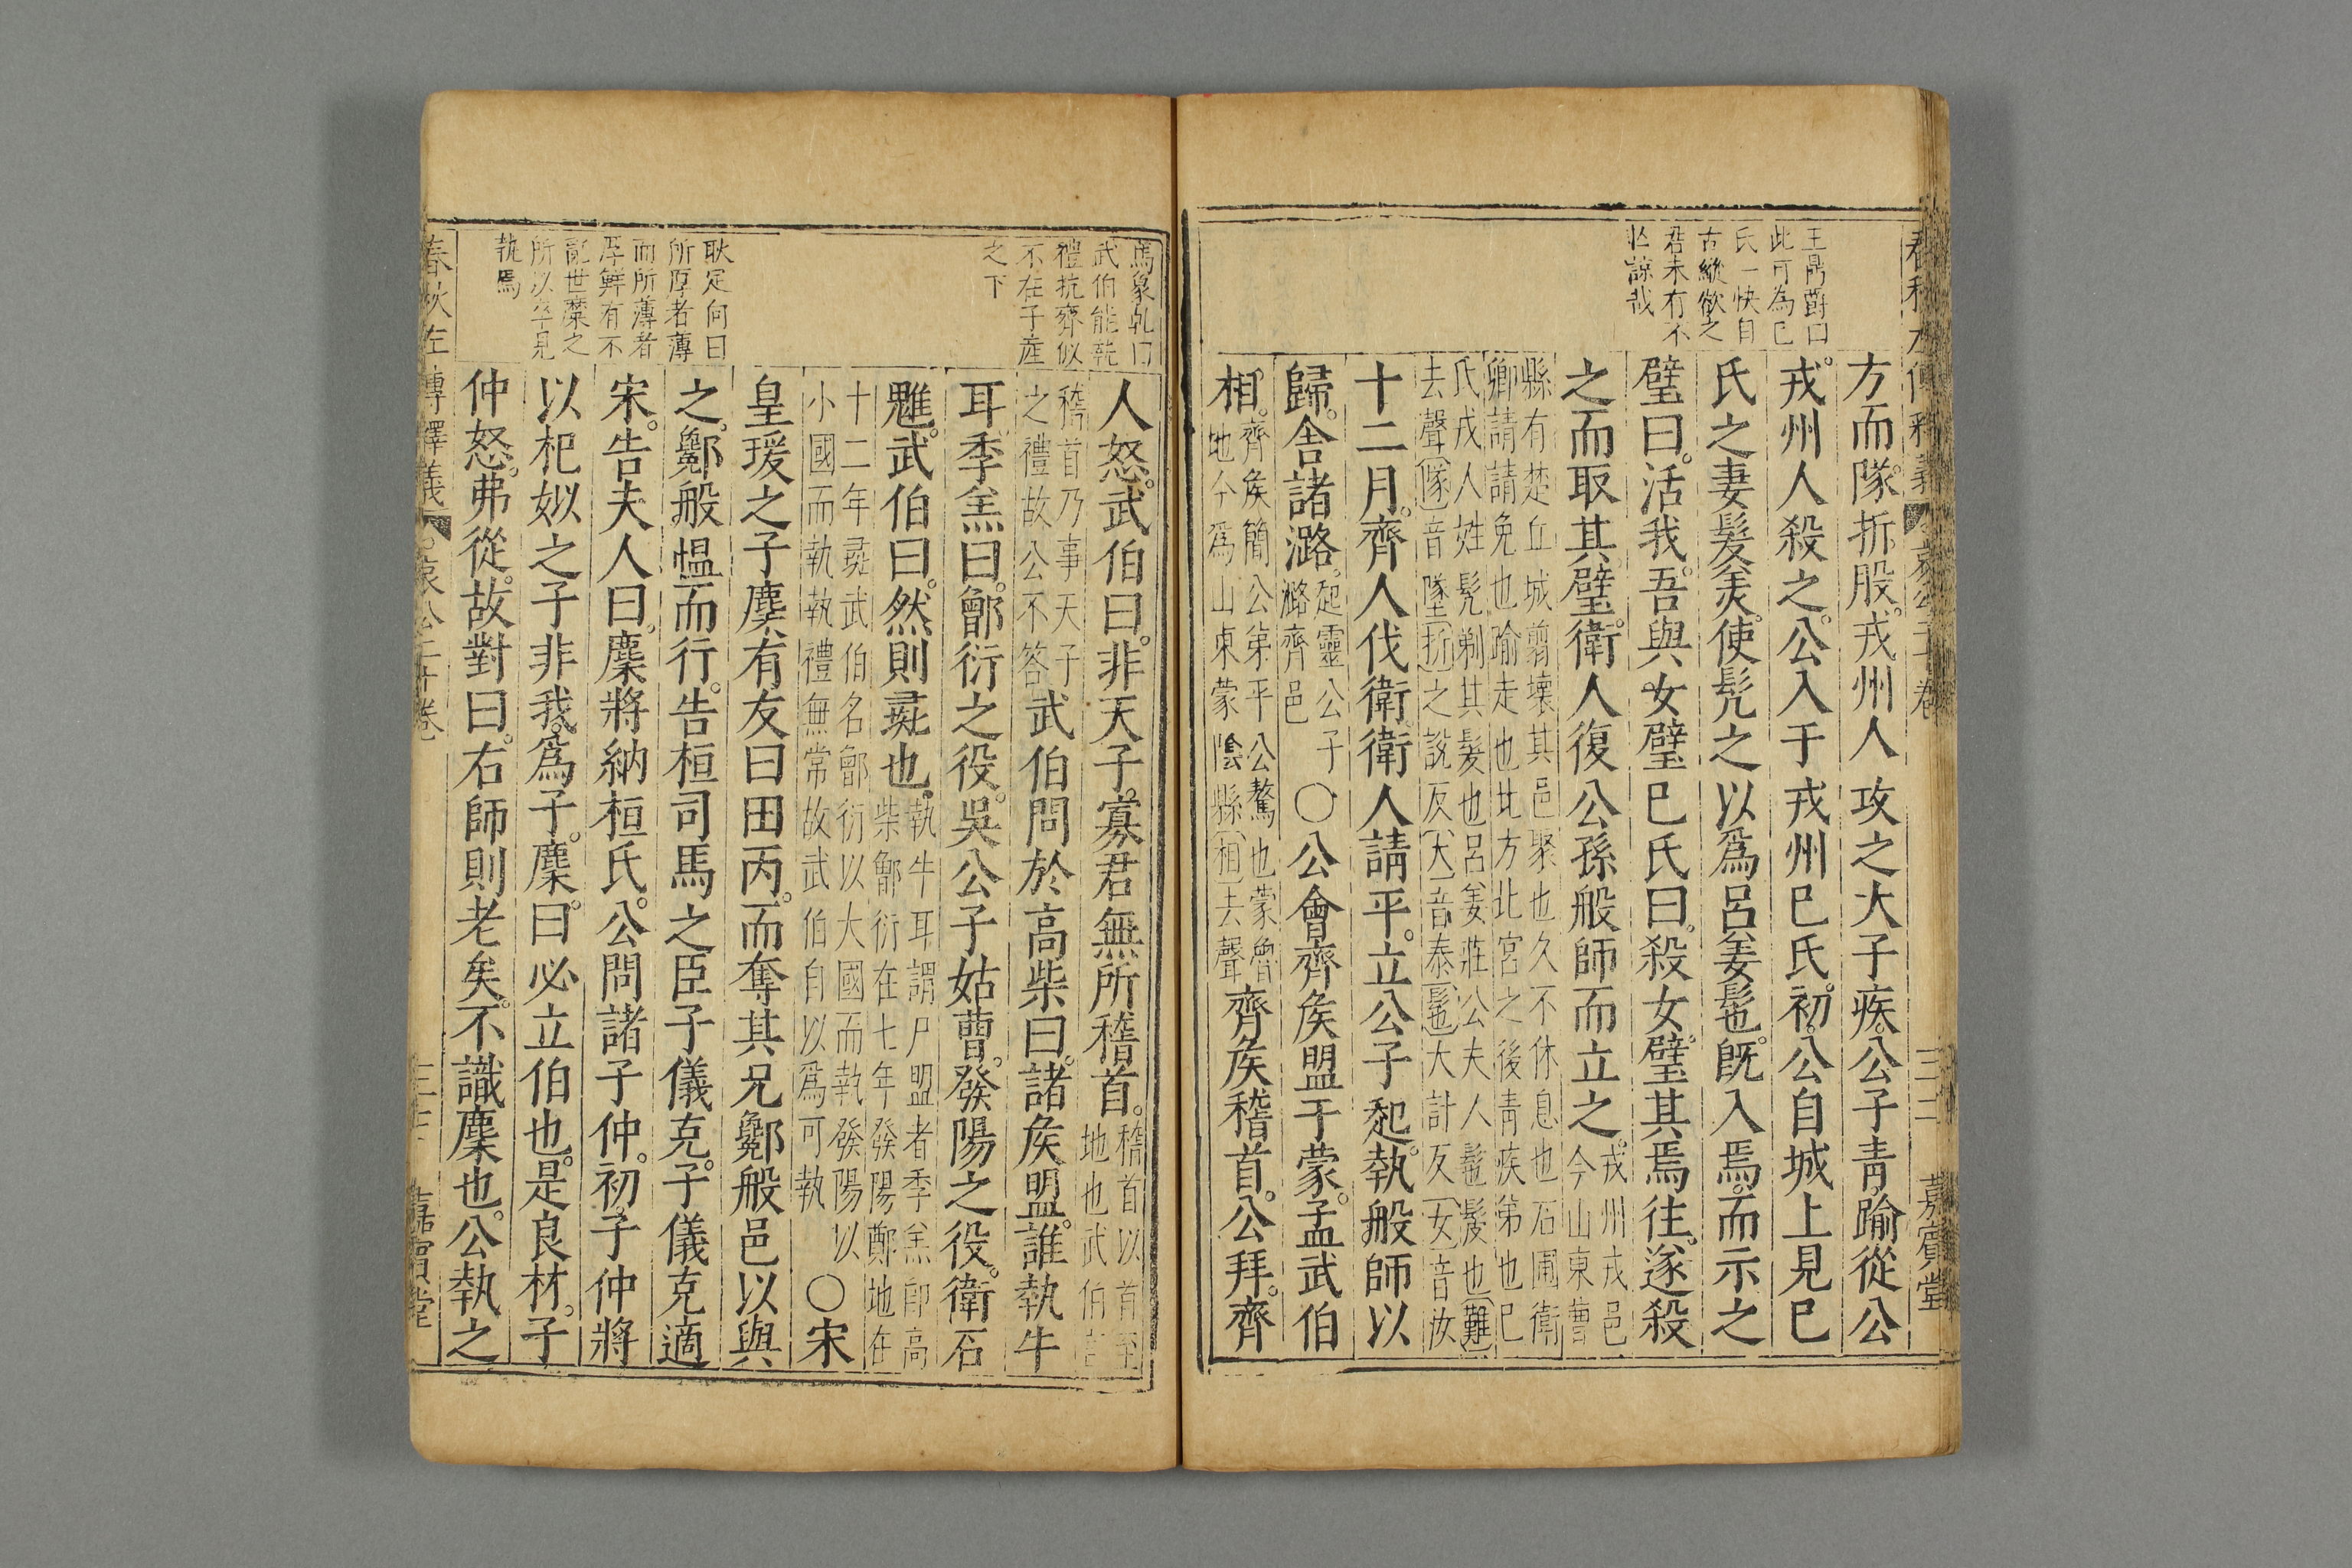 王鼎爵曰
此可為己
氏一快自
古縱欲之
君未有不
亡諒哉
方而隊折股戎州人攻之大子疾公子青踰從公
戎州人殺之公入于戎州己氏初公自城上見己
氏之妻髮美使髡之以爲呂姜髢旣入焉而示之
璧曰活我吾與女璧己氏曰殺女璧其焉往遂殺
之而取其璧衛人復公孫般師而立之戎州戎邑
今山東曹
縣有楚丘城翦壞其邑聚也久不休息也石圃衛
卿請請免也踰走也北方北宮之後青疾弟也己
氏戎人姓髡剃其髮也呂姜莊公夫人髢髲也難
去聲隊音墜折之設反大音泰髢大計反女音汝
十二月齊人伐衛衛人請平立公子起執般師以
歸舍諸潞起靈公子
潞齊邑
〇公會齊侯盟于蒙孟武伯
相齊侯簡公弟平公驁也蒙魯
地今爲山東蒙陰縣相去聲
齊侯稽首公拜齊
春秋左傳釋義
哀公二十卷
嘉賓堂
馮象乾曰
武伯能執
禮抗齊似
不在子產
之下
人怒武伯曰非天子寡君無所稽首稽首以首至
地也武伯言
稽首乃事天子
之禮故公不答
武伯問於高柴曰諸侯盟誰執牛
耳季羔曰鄫衍之役吳公子姑曹發陽之役衛石
魋武伯曰然則彘也執牛耳謂尸盟者季羔卽高
柴鄫衍在七年發陽鄭地在
十二年彘武伯名鄫衍以大國而執發陽以
小國而執執禮無常故武伯自以爲可執
〇宋
耿定向曰
所厚者薄
而所薄者
厚鮮有不
亂世麋之
所以卒見
執焉
皇瑗之子麇有友曰田丙而奪其兄酁般邑以與
之酁般慍而行告桓司馬之臣子儀克子儀克適
宋告夫人曰麇將納桓氏公問諸子仲初子仲將
以杞姒之子非我爲子麇曰必立伯也是良材子
仲怒弗從故對曰右師則老矣不識麇也公執之
春秋左傳釋義
哀公二十卷
嘉賓堂